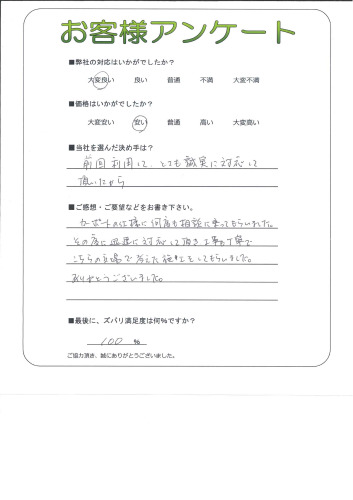 お客様アンケート
■弊社の対応はいかがでしたか？
大変良い 良い 普通 不満 大変不満
■価格はいかがでしたか？
大変安い 安い 普通 高い 大変高い
■当社を選んだ決め手は？
前回利用して、とても誠実に対応して
頂いたから
■ご感想・ご要望などをお書き下さい。
カーポートの仕様に何度も相談に乗ってもらいました。
その度に迅速に対応して頂き工事も丁寧で
こちらの立場で考えた施工をしてもらいました。
ありがとうございました。
■最後に、ズバリ満足度は何%ですか？
100 %
ご協力頂き、誠にありがとうございました。